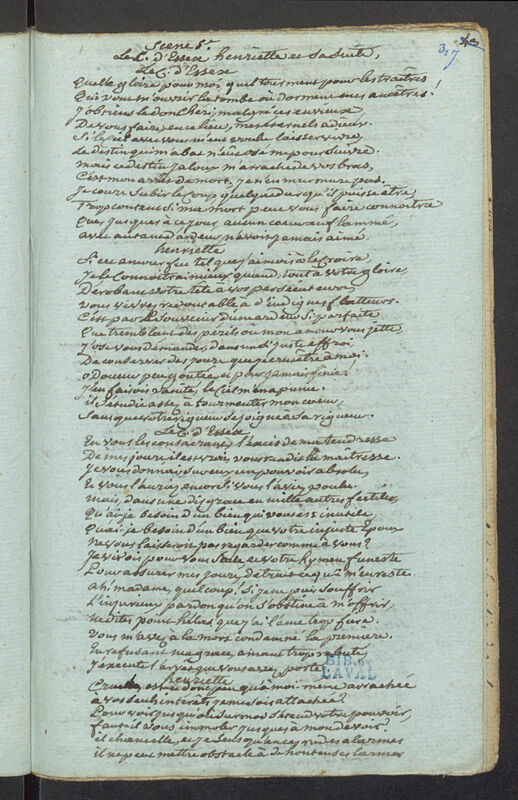 317
Scene 5e
Le C. d'Essex henriette et sa suite,
Le C. d'Essex
Quelle gloire pour moi, quel tourment pour les traîtres
Qui vont m'ouvrir la tombe où dorment mes ancêtres!
J'obtiens le don cheri, malgré ces envieux
De vous faire en ce lieu, mes eternels adieux.
Si le ciel avec vous m'eut voulu laisser vivre,
Le destin qui m'abat n'eût osé me poursuivre.
mais ce destin jaloux m'arrache de vos bras,
C'est mon arrêt de mort, je n'en murmure pas.
Je cours subir le coup quelque dur qu'il puisse être,
Trop content si ma mort peut vous faire connoître
Que jusques à ce jour aucun coeur enflammé,
avec autant d'ardeur n'avoit jamais aimé
henriette
Si cet amour fut tel que j'aimois à le croire
Je le connoîtrai mieux quand, tout à votre gloire
Dérobant votre tête à vos persécuteurs
Vous vivrez redoutable à d'indignes flatteurs.
C'est par le souvenir d'une ardeur si parfaite
Que tremblant des périls où mon amour vous jette
J'ose vous demander, dans un si juste effroi
De conserver des jours que j'ai crus être à moi.
o douceur peu goutée et pour jamais finie!
J'en faisois vanité, le Ciel m'en a punie.
il s'étudie assez à tourmenter mon coeur,
Sans que votre rigueur se joigne à sa rigueur.
Le C. d'Essex
En vous les consacrant l'excès de ma tendresse
De mes jours, il est vrai, vous rendit la maîtresse.
Je vous donnai sur eux un pouvoir absolu,
Et vous l'auriez encor si vous l'aviez voulu.
mais, dans une disgrace en mille autres fertile,
Qu'ai-je besoin d'un bien qui vous est inutile,
Qu'ai-je besoin d'un bien que votre injuste Epoux
Ne vous laisseroit pas regarder comme à vous?
Je vivois pour vous seule et votre hymen funeste
Pour assurer mes jours, détruit ce qui m'en reste.
ah! madame, quel coup! Si je ne puis souffrir
L'injurieux pardon qu'on s'obstine à m'offrir,
ne dites point hélas! que j'ai l'ame trop fiere.
Vous m'avez à la mort condamné la premiere.
En refusant ma grace, amant trop rebuté
J'execute l'arrêt que vous avez porté
BIB. DE
LAVAL
henriette
Cruel! est-ce donc peu qu'à moi même arrachée
à vos seuls interêts je me sois attachée?
Pour voir jusqu'où sur moi s'étend votre pouvoir,
faut-il vous immoler jusques à mon devoir?
il chancelle, et je sens qu'en ces rudes alarmes
il ne peut mettre obstacle à de honteuses larmes